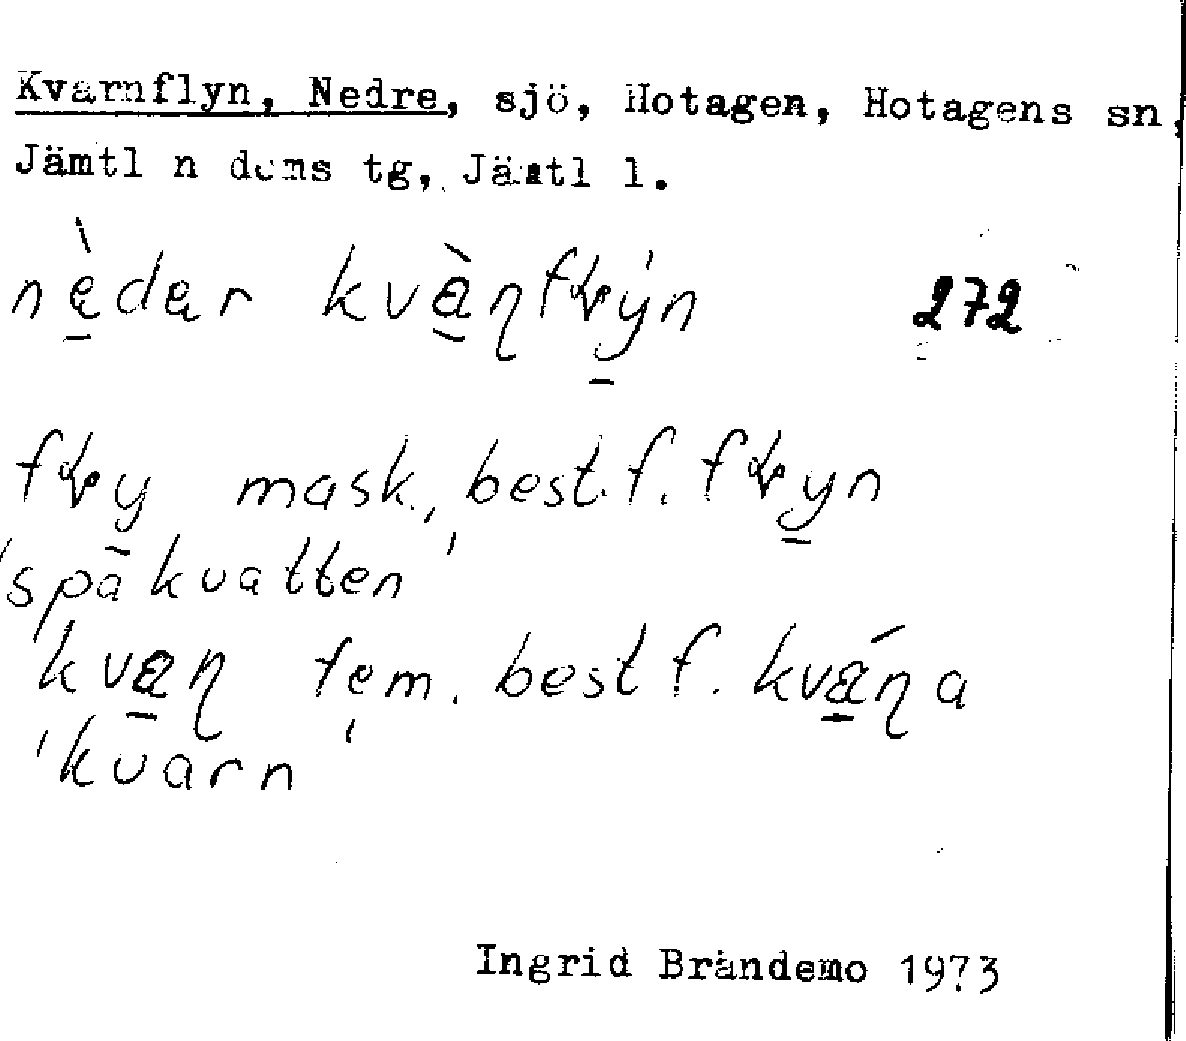 Kvarnflyn, Nedre, sjö, Hotagen, Hotagens sn,
Jämtl n doms tg, Jämtl l.
nèdar kvæ̀ɳfɽýn 272
fɽy mask., best. f. fɽyn
'spåkvatten'
kvæɳ fem. best f. kvǽɳa
'kvarn'
Ingrid Brändemo 1973